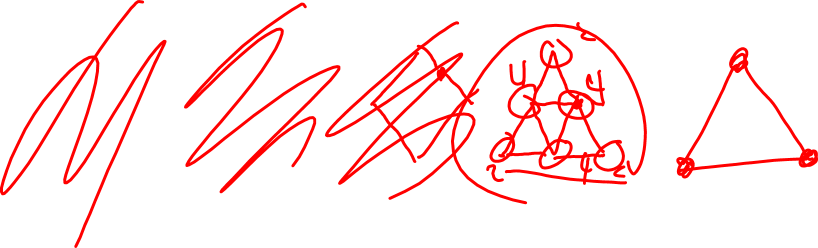 2
4 4
2 4 2